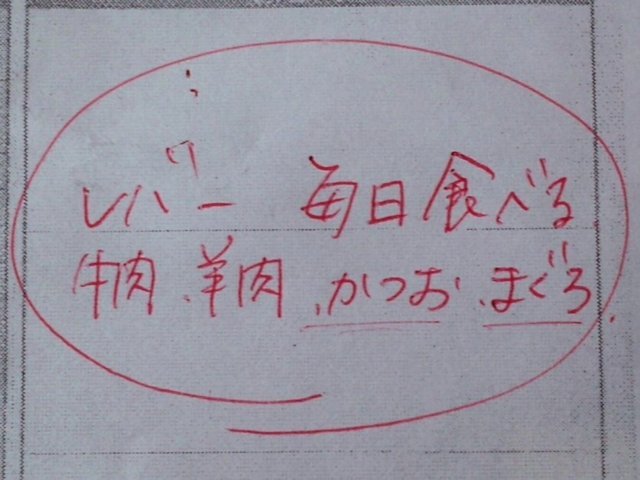 レバー 毎日食べる
牛肉、羊肉、かつお、まぐろ